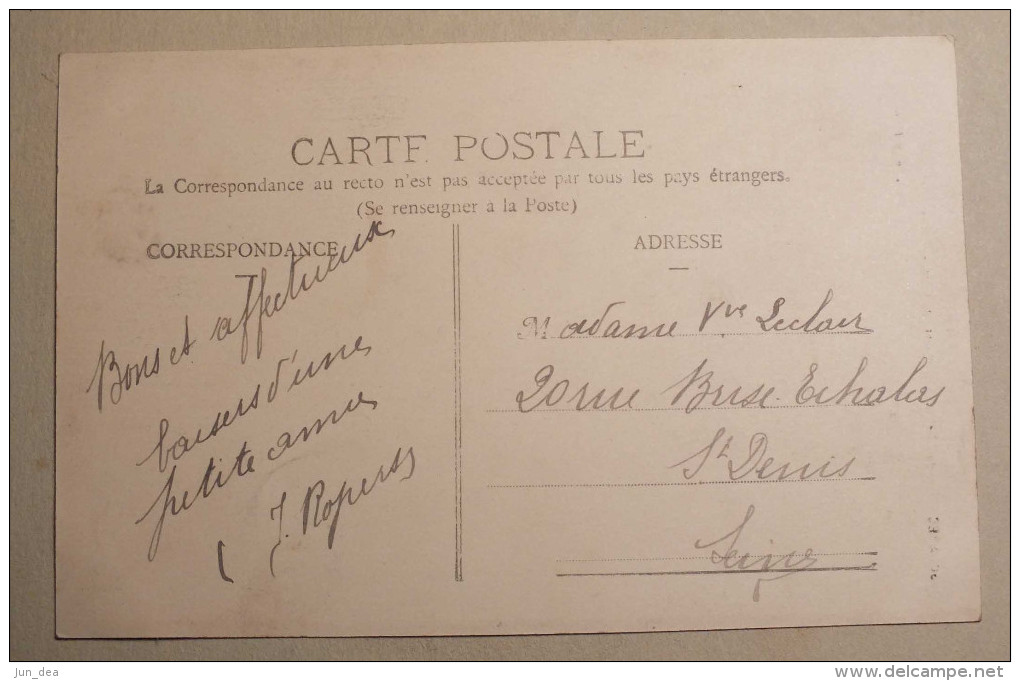 CARTE POSTALE
La Correspondance au recto n'est pas acceptée par tous les pays étrangers.
(Se renseigner à la Poste)
CORRESPONDANCE
Bons et affectueux
baisers d'une
petite amie
J. Ropers
ADRESSE
Madame Vve Leclair
20 rue Brise Echalas
St Denis
Seine
jun_dea
http://www.delcampe.net